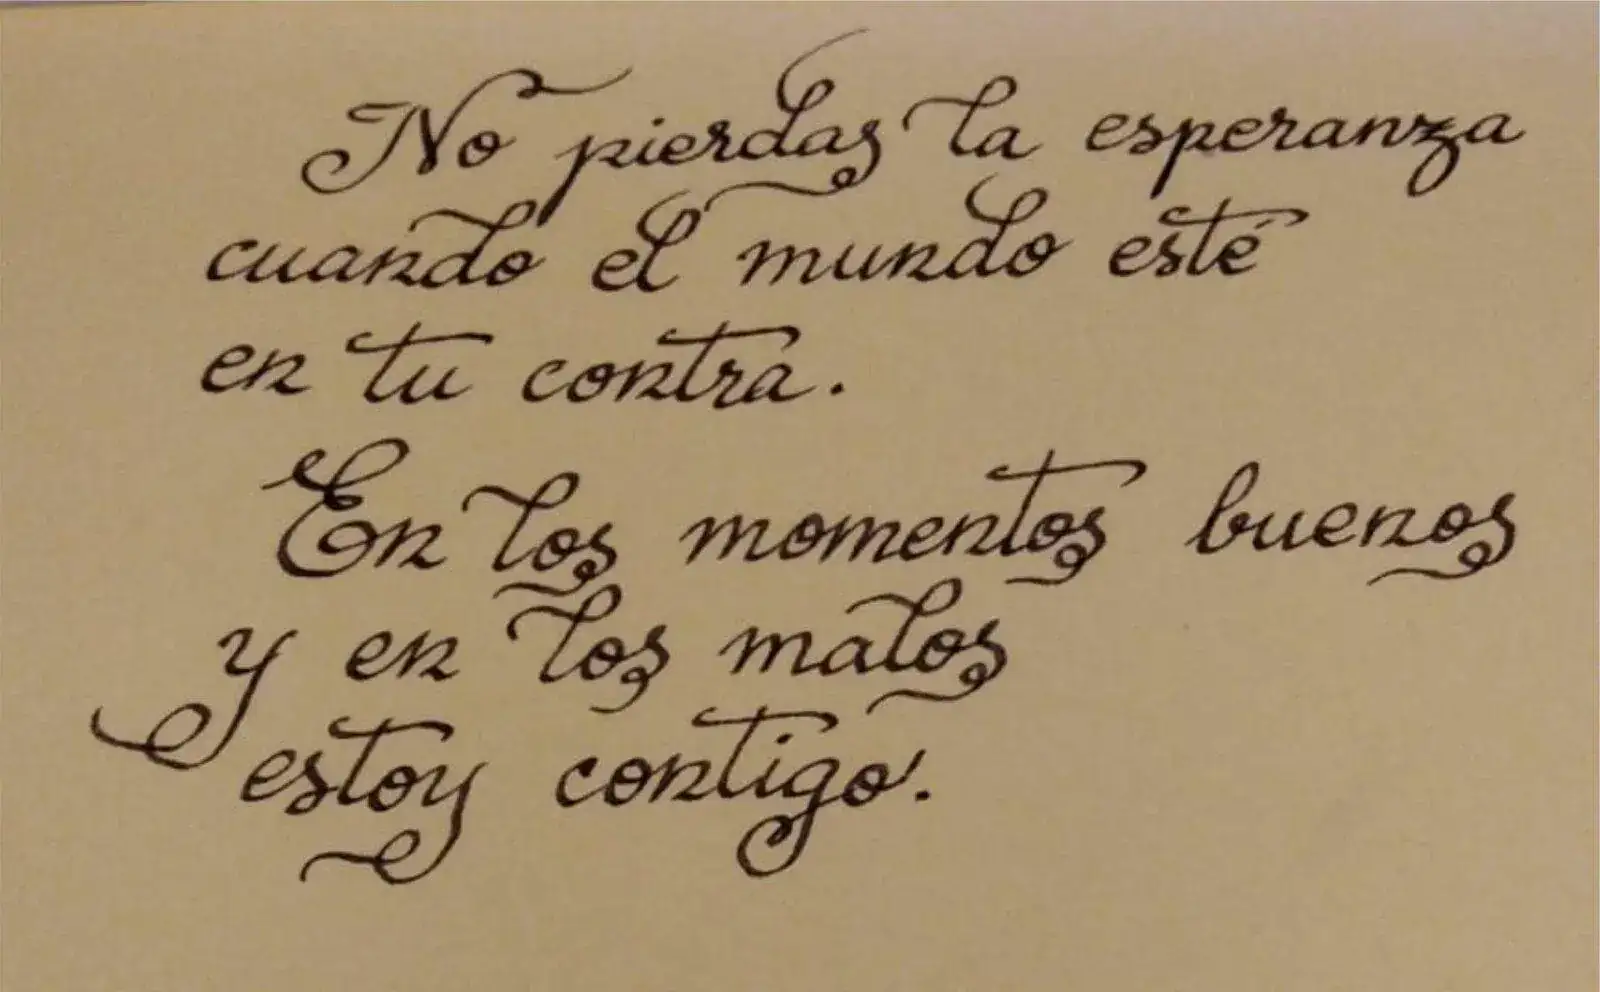 No pierdas la esperanza
cuando el mundo esté
en tu contra.
En los momentos buenos
y en los malos
estoy contigo.